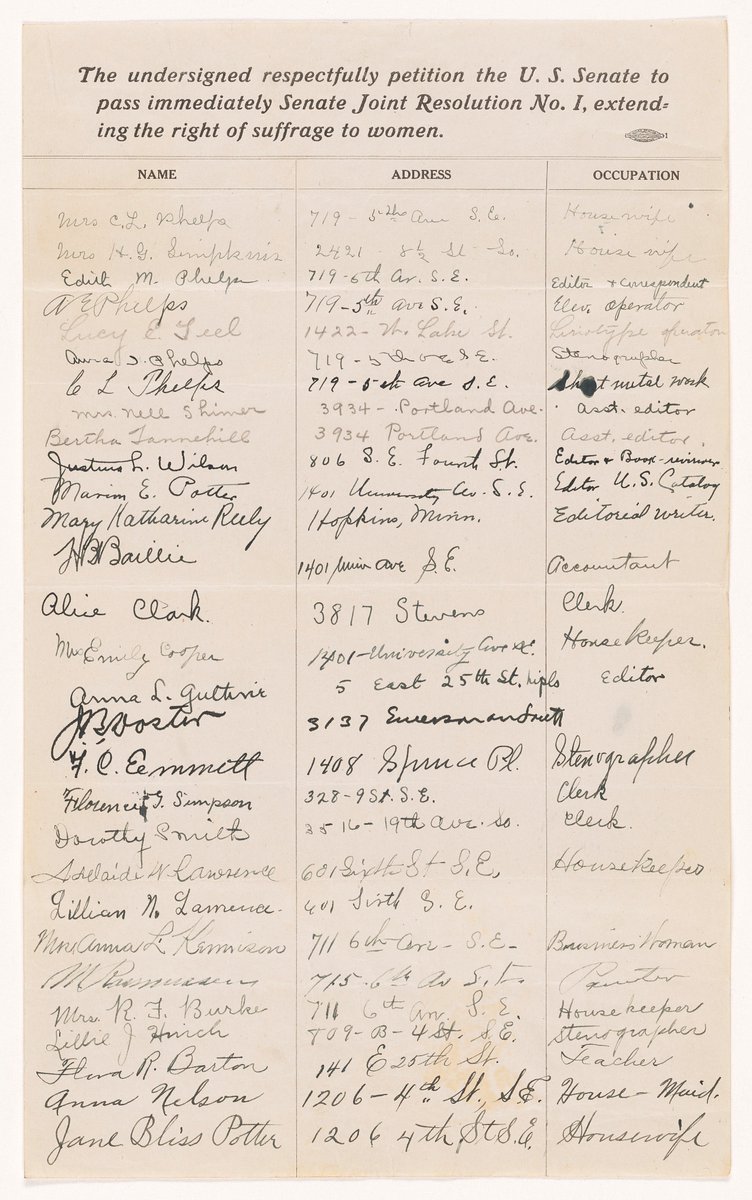 The undersigned respectfully petition the U. S. Senate to
pass immediately Senate Joint Resolution No. I, extend=
ing the right of suffrage to women.
NAME ADDRESS OCCUPATION
Mrs C. L. Phelps 719 - 5th Ave S.E. Housewife
Mrs H. G. Simpkins 2421 - 8½ St So. House wife
Edith M. Phelps 719-5th Av. S.E. Editor & Correspondent
A E Phelps 719-5th Ave S.E. Elev. operator
Lucy E. Teel 1422 - W. Lake St. Linotype operator
Anna J. Phelps 719 - 5th Ave S.E. Stenographer
C L Phelps 719 - 5th Ave S.E. metal work
Mrs. Nell Shimer 3934 - Portland Ave. Asst. editor
Bertha Tannehill 3934 Portland Ave. Asst. editor.
Justina L. Wilson 806 S.E. Fourth St. Editor & Book-reviewer
Marion E. Potter 1401 University Av. S.E. Editor U.S. Catalog
Mary Katharine Reely Hopkins, Minn. Editorial writer.
H B Baillie 1401 Univ Ave S.E. Accountant
Alice Clark. 3817 Stevens Clerk.
Mrs Emily Cooper 1401-University Ave S.E. House keeper.
Anna L. Guthrie 5 East 25th St. Mpls Editor
3137 Emerson an South
F. C. Eemmett 1408 Spruce Pl. Stenographer
Florence G. Simpson 328-9 St. S.E. Clerk
Dorothy Smith 3516 - 19th Ave. So. Clerk.
Adelaide W. Lawrence 601 Sixth St S.E. Housekeeper
Lillian N. Lawrence. 601 Sixth S.E.
Mrs. Anna L. Kennison 711 6th Ave - S.E. - Business Woman
M Rasmussen 715 - 6th Av S.E.
Mrs. R. F. Burke 711 6th Av. S.E. Housekeeper
Lillie J Hinch 809 - B - 4 St. S.E. Stenographer
Flora R. Barton 141 E 25th St. Teacher
Anna Nelson 1206 - 4th St. S.E. House - Maid.
Jane Bliss Potter 1206 4th St S.E. Housewife